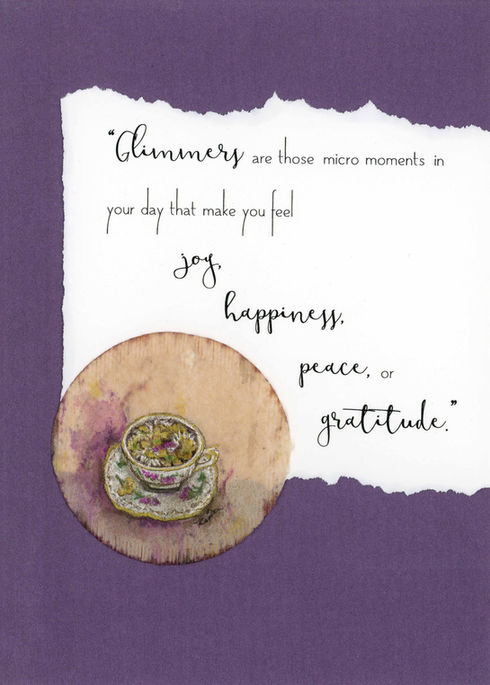 “Glimmers are those micro moments in
your day that make you feel
joy,
happiness,
peace, or
gratitude.”